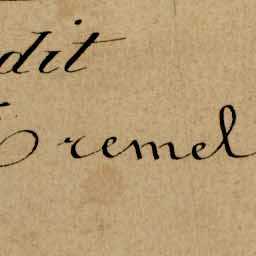 dit
Cremel